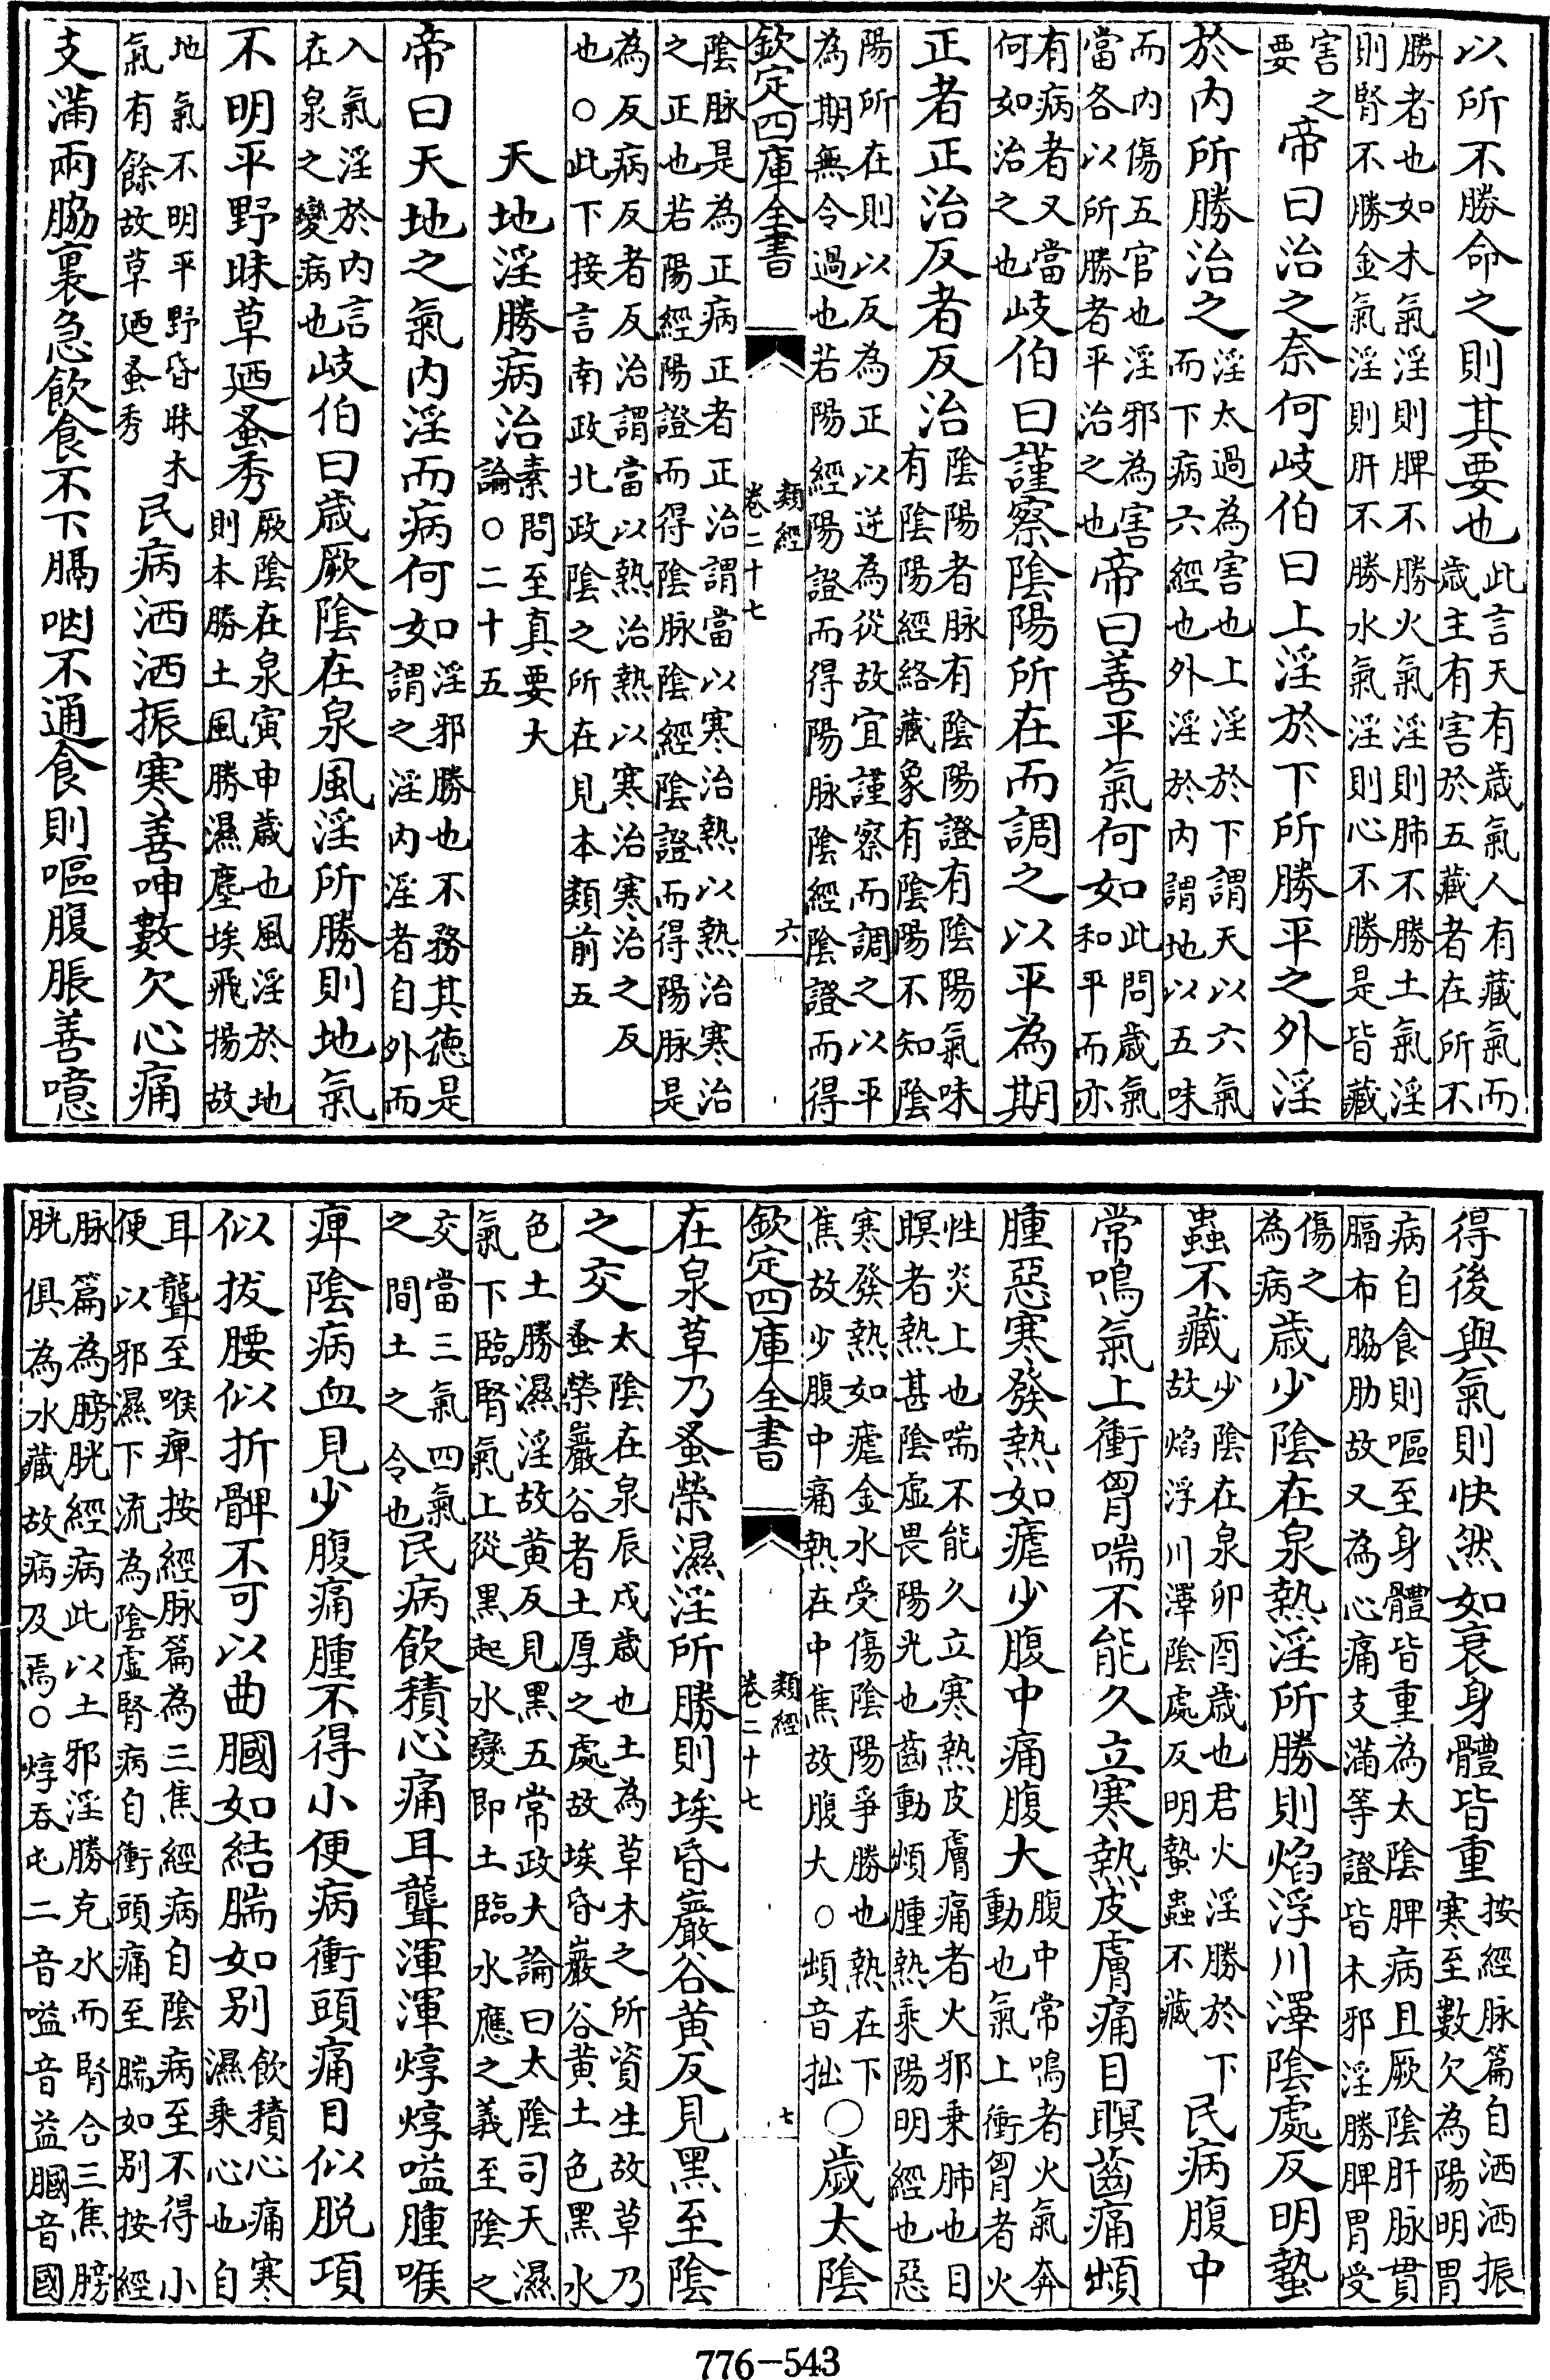 以所不勝命之則其要也此言天有歲氣人有藏氣而歲主有害於五藏者在所不
勝者也如木氣淫則脾不勝火氣淫則肺不勝土氣淫則腎不勝金氣淫則肝不勝水氣淫則心不勝是皆藏
害之要帝曰治之奈何岐伯曰上淫於下所勝平之外淫
於内所勝治之淫太過為害也上淫於下謂天以六氣而下病六經也外淫於内謂地以五味
而内傷五官也淫邪為害當各以所勝者平治之也帝曰善平氣何如此問歲氣和平而亦
有病者又當何如治之也岐伯曰謹察陰陽所在而調之以平為期
正者正治反者反治陰陽者脉有陰陽證有陰陽氣味有陰陽經絡藏象有陰陽不知陰
陽所在則以反為正以逆為從故宜謹察而調之以平為期無令過也若陽經陽證而得陽脉陰經陰證而得
欽定四庫全書 類經卷二十七 六
陰脉是為正病正者正治謂當以寒治熱以熱治寒治之正也若陽經陽證而得陰脉陰經陰證而得陽脉是
為反病反者反治謂當以熱治熱以寒治寒治之反也○此下接言南政北政陰之所在見本類前五
天地淫勝病治素問至真要大論○二十五
帝曰天地之氣内淫而病何如淫邪勝也不務其德是謂之淫内淫者自外而
入氣淫於内言在泉之變病也岐伯曰歲厥陰在泉風淫所勝則地氣
不明平野昧草廼蚤秀厥陰在泉寅申歲也風淫於地則本勝土風勝濕塵埃飛揚故
地氣不明平野昏昧木氣有餘故草廼蚤秀民病洒洒振寒善呻數欠心痛
支滿兩脇裏急飲食不下膈咽不通食則嘔腹脹善噫
得後與氣則快然如衰身體皆重按經脉篇自洒洒振寒至數欠為陽明胃
病自食則嘔至身體皆重為太陰脾病且厥陰肝脉貫膈布脇肋故又為心痛支滿等證皆木邪淫勝脾胃受
傷之為病歲少陰在泉熱淫所勝則焰浮川澤陰處反明蟄
蟲不藏少陰在泉卯酉歲也君火淫勝於下故焰浮川澤陰處反明蟄蟲不藏民病腹中
常鳴氣上衝胷喘不能久立寒熱皮膚痛目瞑齒痛䪼
腫惡寒發熱如瘧少腹中痛腹大腹中常鳴者火氣奔動也氣上衝胷者火
性炎上也喘不能久立寒熱皮膚痛者火邪乗肺也目瞑者熱甚陰虛畏陽光也齒動䪼腫熱乘陽明經也惡
寒發熱如瘧金水受傷陰陽爭勝也熱在下焦故少腹中痛熱在中焦故腹大○䪼音拙○歲太陰
欽定四庫全書 類經卷二十七 七
在泉草乃蚤榮濕淫所勝則埃昏巖谷黄反見黑至陰
之交太陰在泉辰戌歲也土為草木之所資生故草乃蚤榮巖谷者土厚之處故埃昏巖谷黄土色黑水
色土勝濕淫故黄反見黑五常政大論曰太陰司天濕氣下臨腎氣上從黑起水變即土臨水應之義至陰之
交當三氣四氣之間土之令也民病飲積心痛耳聾渾渾焞焞嗌腫喉
痺陰病血見少腹痛腫不得小便病衝頭痛目似脱項
似拔腰似折髀不可以曲膕如結腨如别飲積心痛寒濕乘心也自
耳聾至喉痺按經脉篇為三焦經病自陰病至不得小便以邪濕下流為陰虛腎病自衝頭痛至腨如别按經
脉篇為膀胱經病此以土邪淫勝克水而腎合三焦膀胱俱為水藏故病及焉○焞吞屯二音嗌音益膕音國
776-543